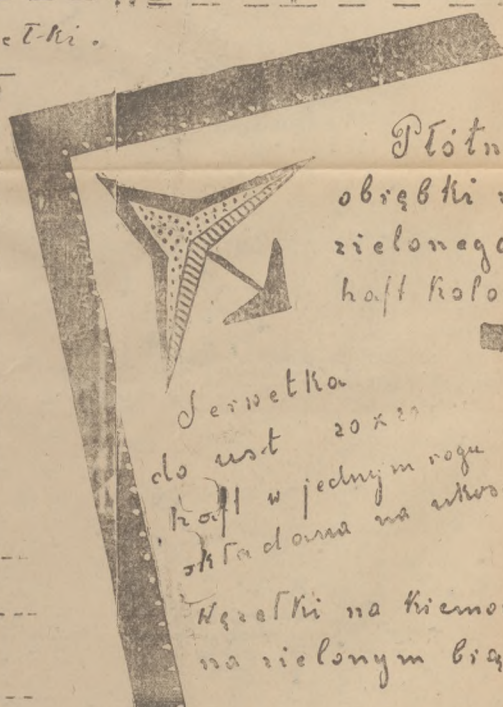 etki.
Płótn
obrębki
zielonego
haft kolo
Serwetka
do ust 20 x 20
haft w jednym rogu
składana na ukos
Węzełki na kiemo
na zielonym